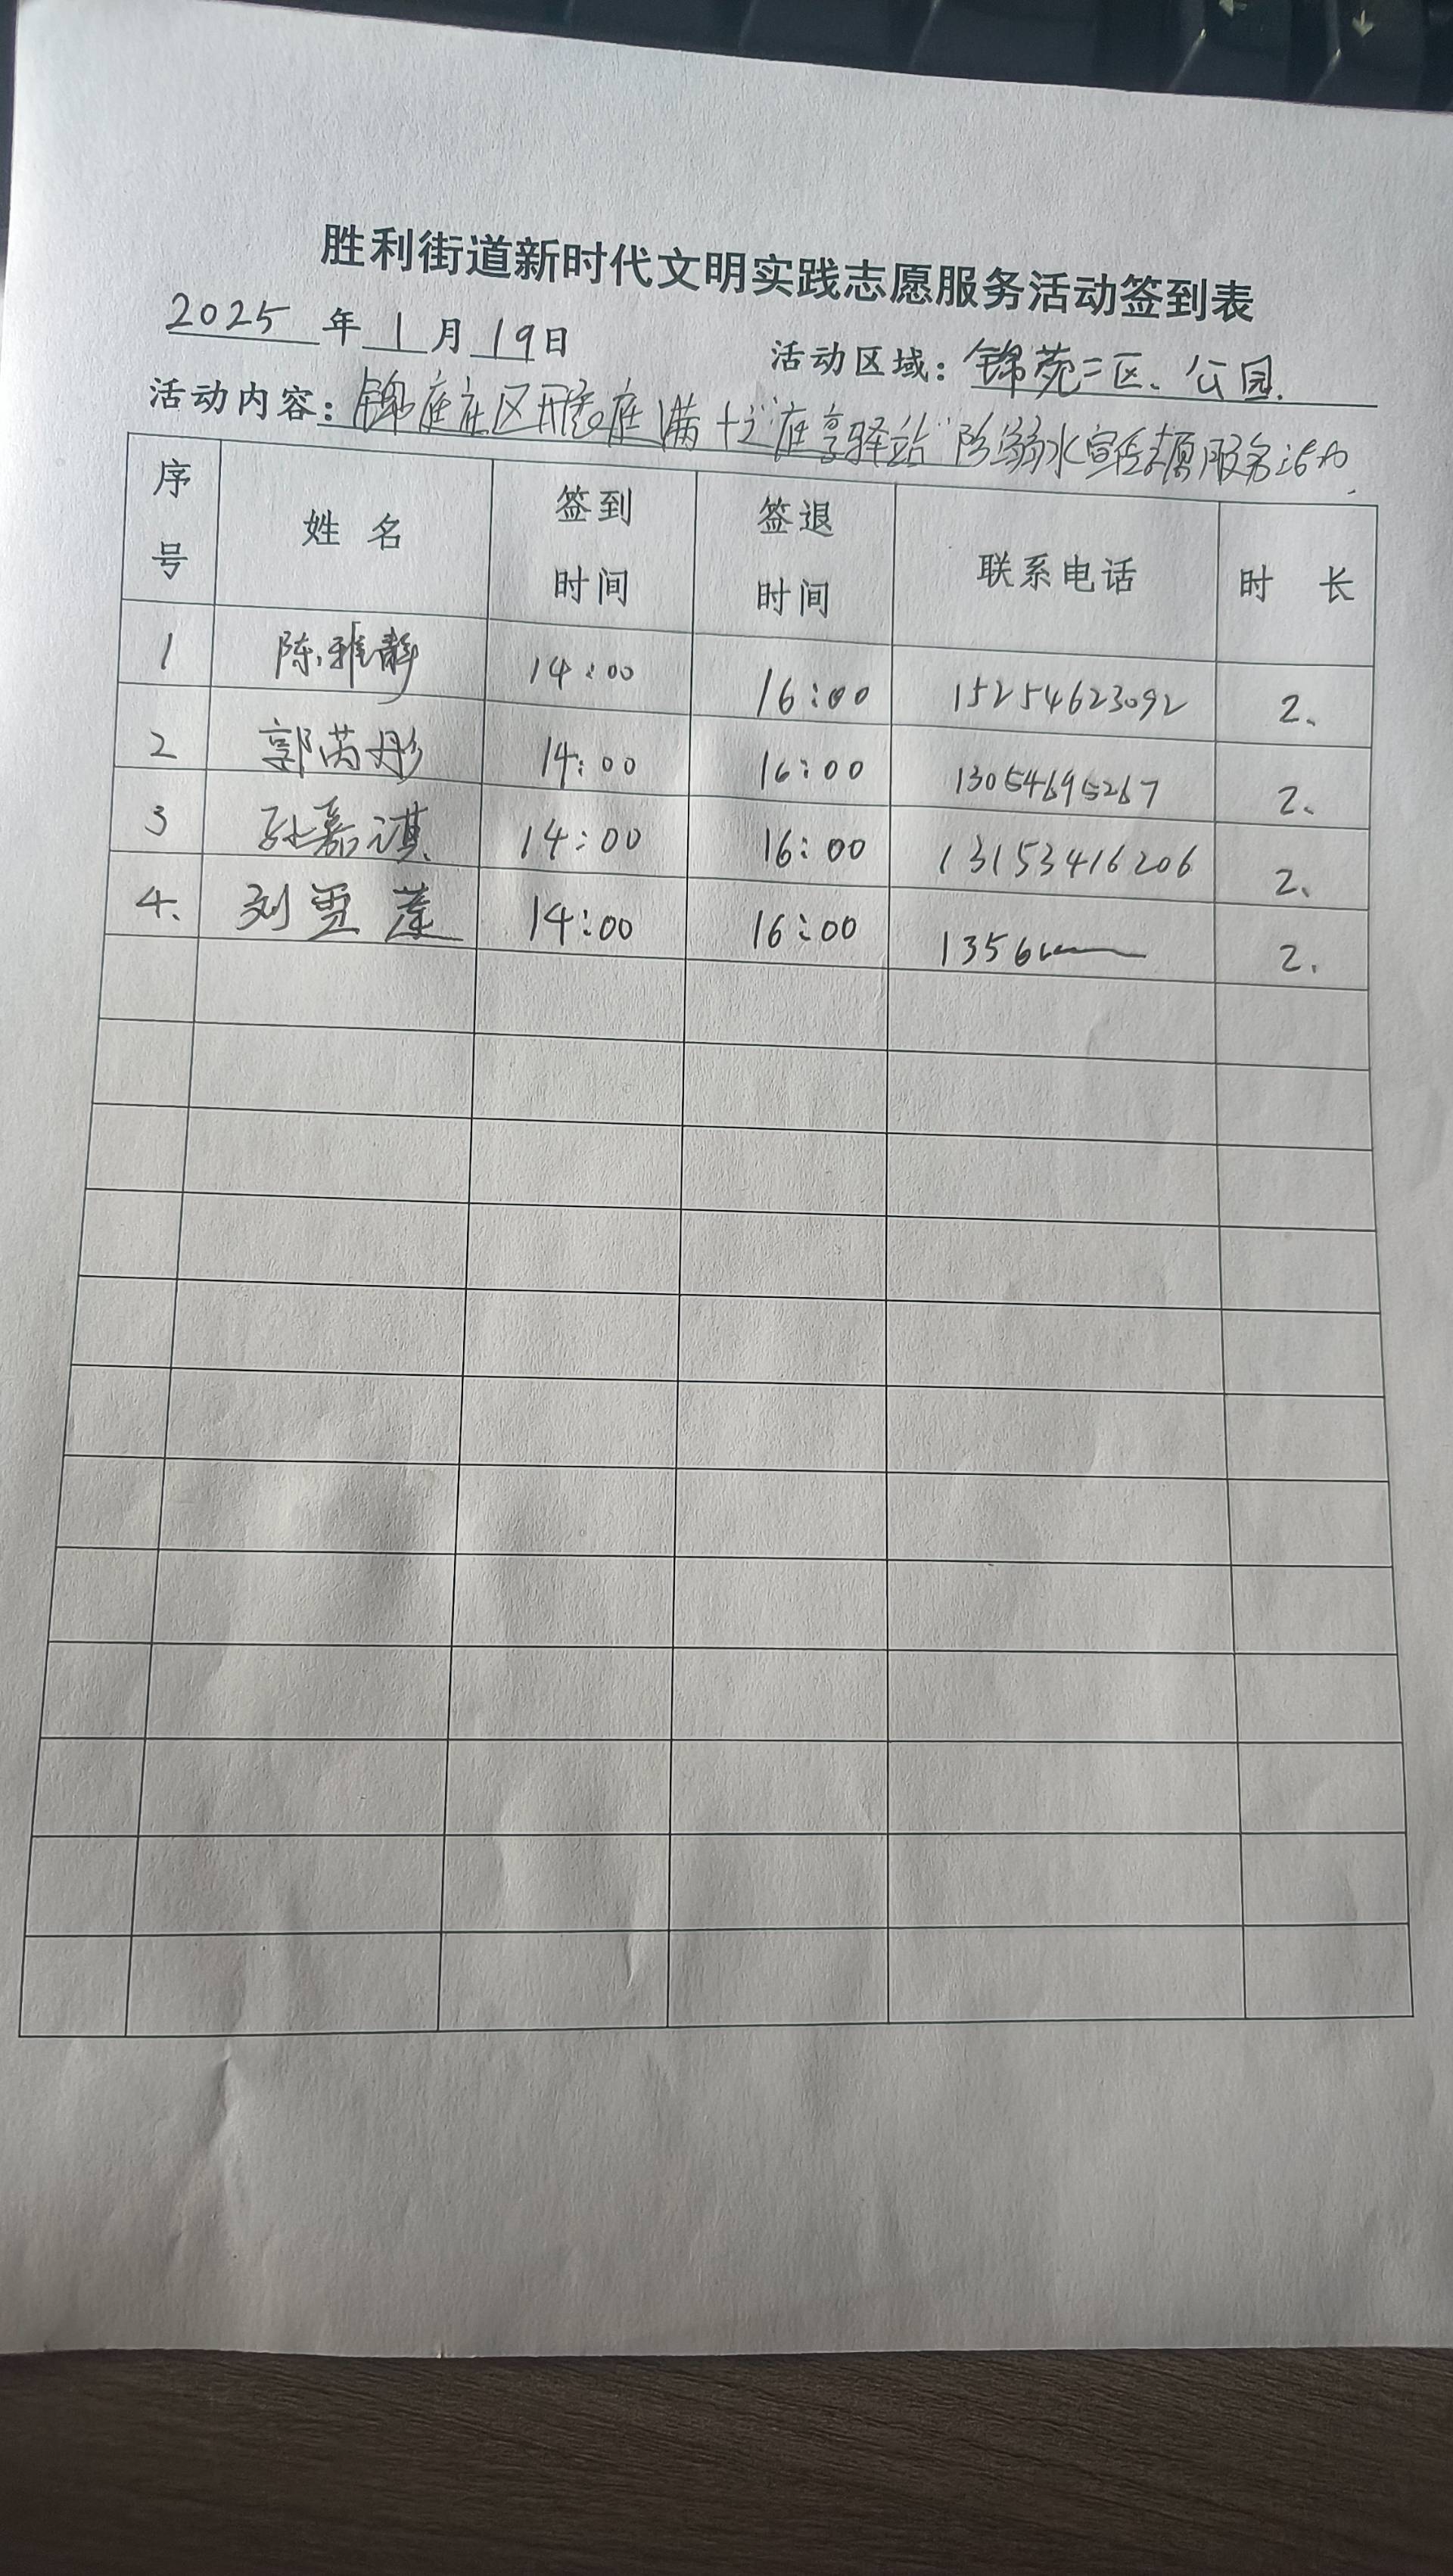 胜利街道新时代文明实践志愿服务活动签到表
2025 年 1 月 19 日 活动区域：锦苑二区、公园.
活动内容：锦庭社区 庭满 "庭享驿站"防溺水宣传志愿服务活动.
序号 姓 名 签到时间 签退时间 联系电话 时 长
1 陈雅静 14:00 16:00 15254623092 2.
2 郭芮彤 14:00 16:00 13054695267 2.
3 孙嘉淇 14:00 16:00 13153416206 2.
4. 刘 14:00 16:00 1356 2.